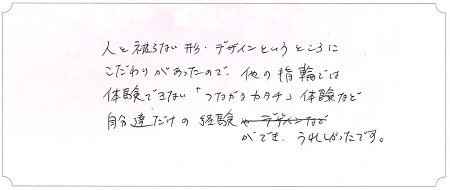 人と被らない形・デザインというところに
こだわりがあったので、他の指輪では
体験できない「つながるカタチ」体験など
自分達だけの経験やデザインなど
ができ、うれしかったです。